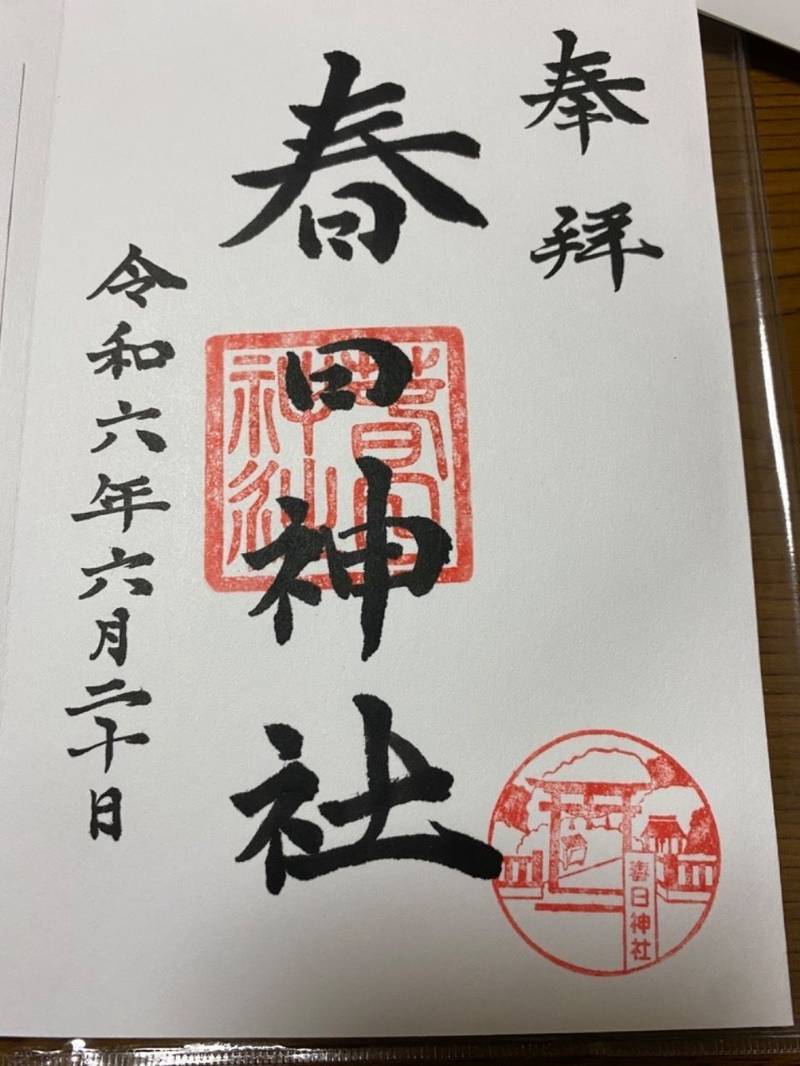 奉拝
春日神社
春日
神社
令和六年六月二十日
春日神社